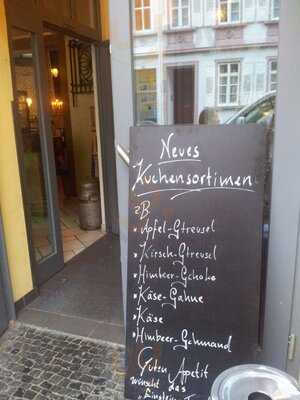 Neues
Kuchensortiment
zB.
* Apfel-Streusel
* Kirsch-Streusel
* Himbeer-Schoko
* Käse-Sahne
* Käse
* Himbeer-Schmand
Guten Appetit
wünscht das
"Einstein